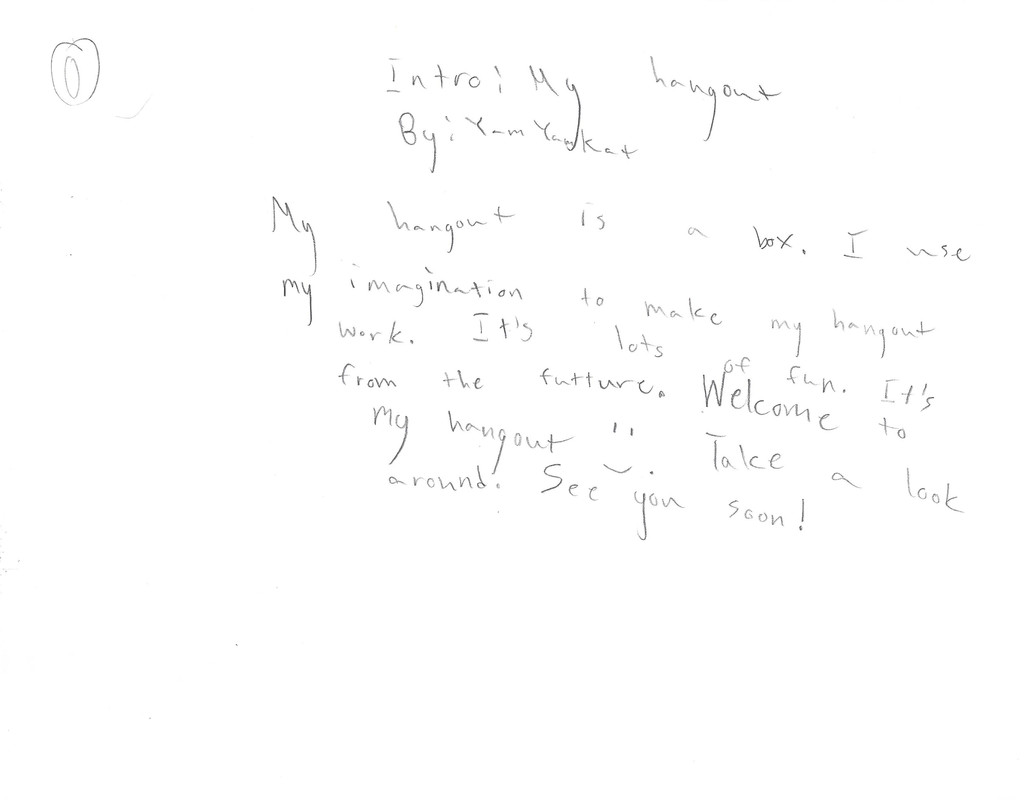 0
Intro: My hangout
By: Yam Yamkat
My hangout is a box. I use
my imagination to make my hangout
work. It's lots of fun. It's
from the futture. Welcome to
my hangout . Take a look
around. See you soon!